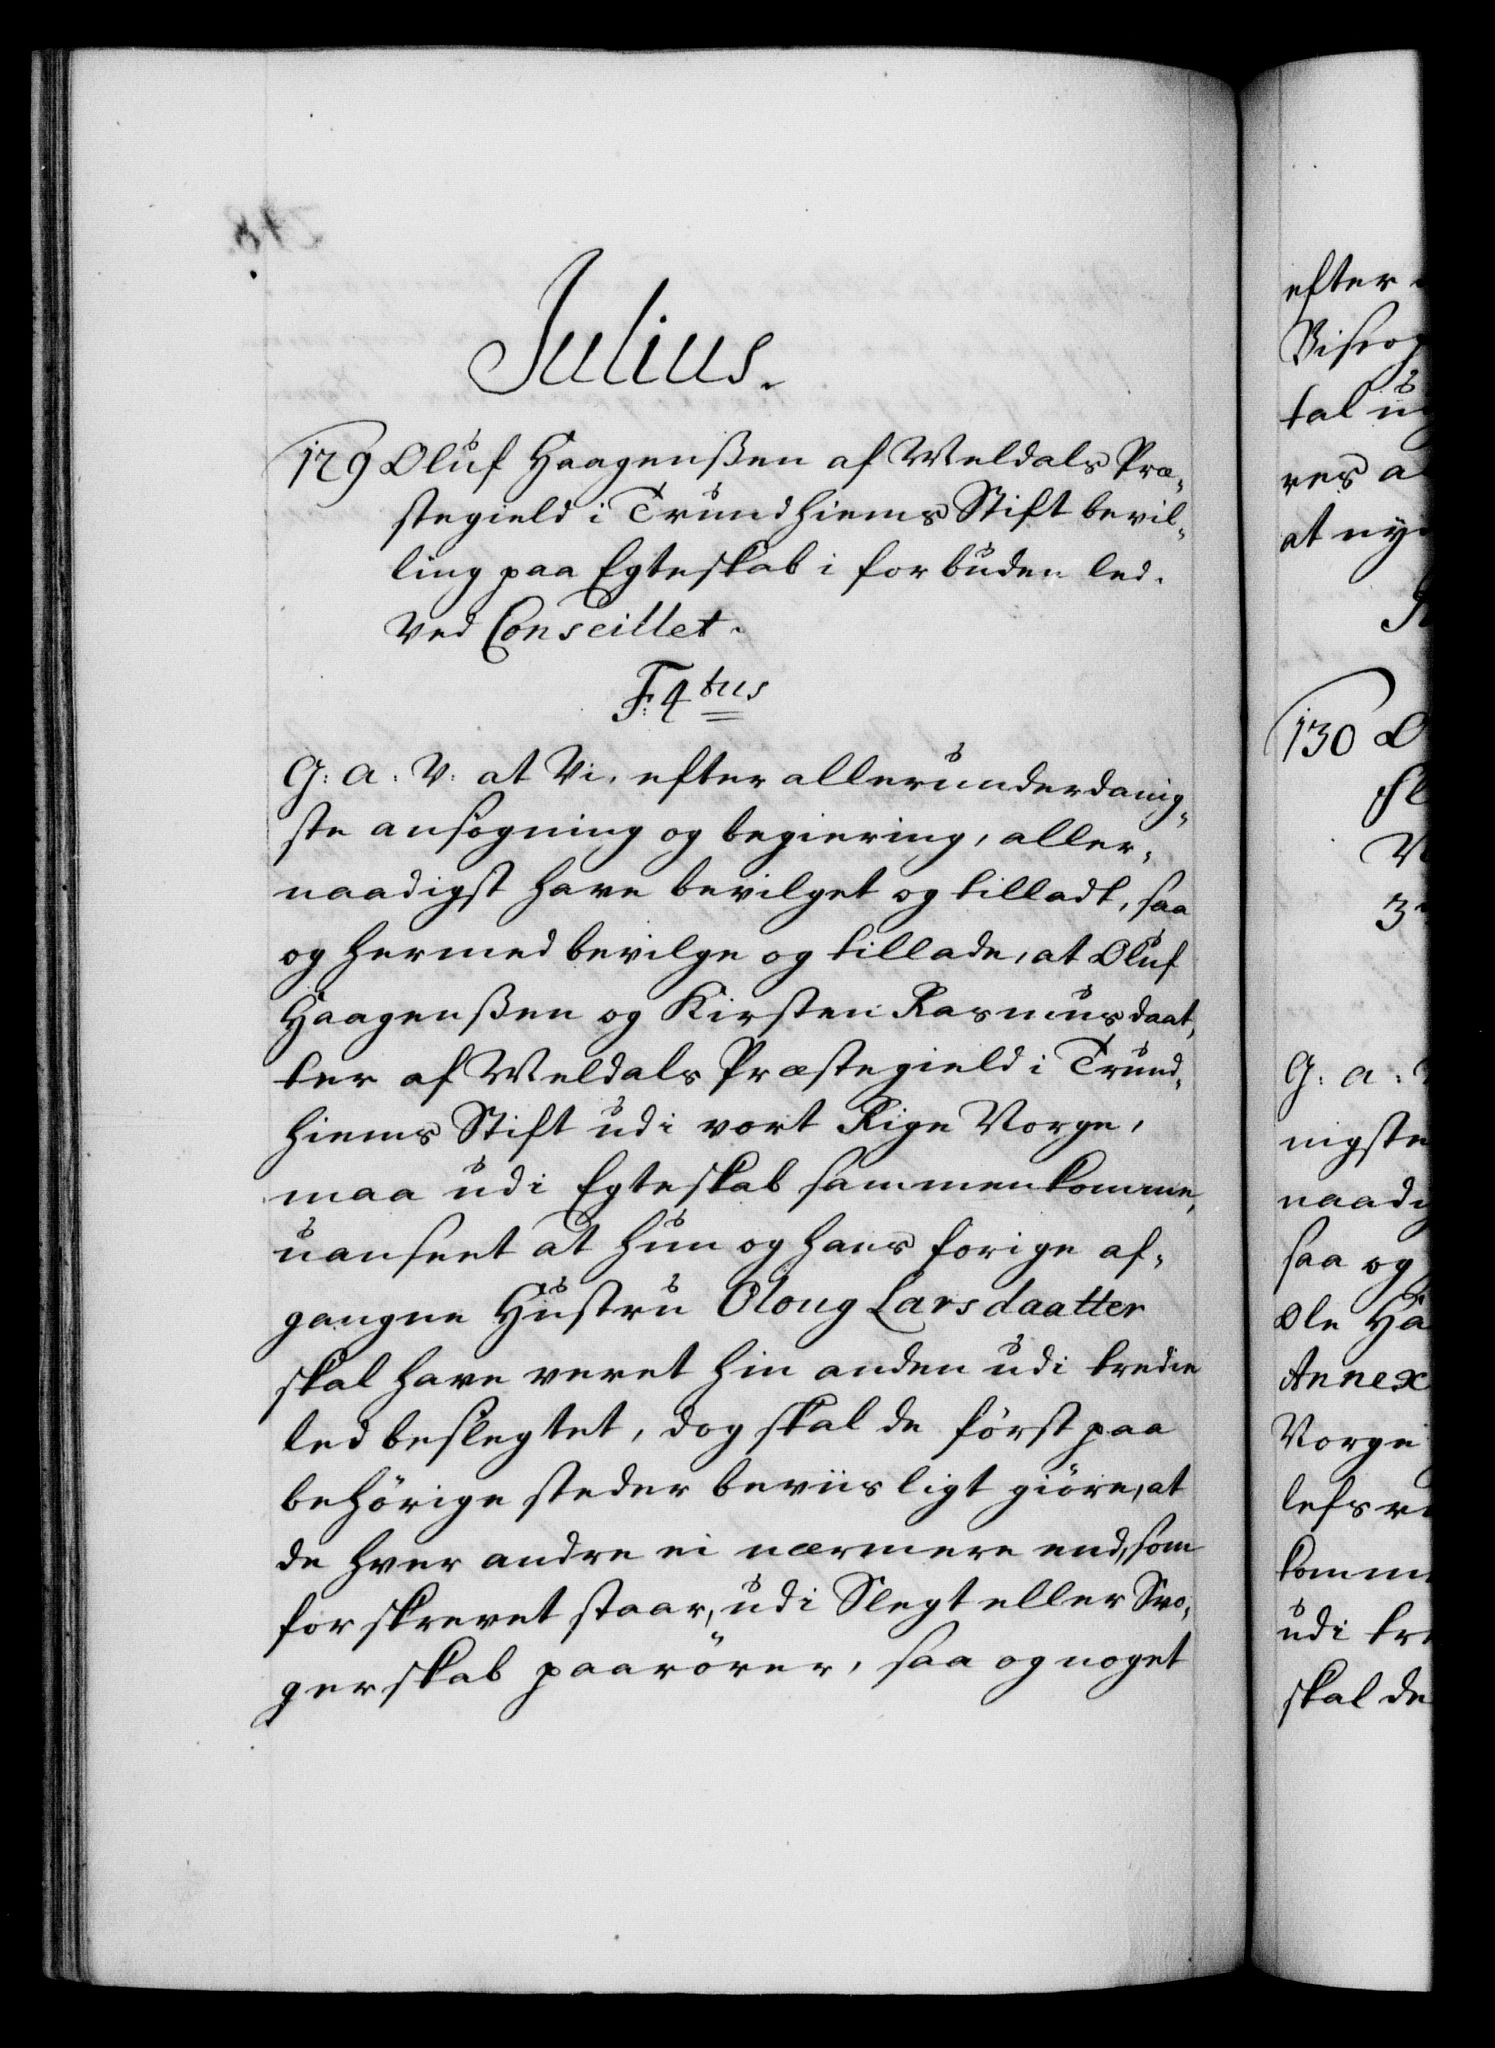 Julius.
129 Oluf Haagenßen af Meldals Præ-
stegield i Trundhiems Stift bevil-
ling paa Egteskab i forbuden led.
Ved Conseillet.
F: 4tus
G: A: V: at Vi, efter allerunderdanig-
ste ansøgning og begiering, aller-
naadigst have bevilget og tilladt, saa
og hermed bevilge og tillade, at Oluf
Haagenßen og Kirsten Rasmusdaat-
ter af Meldals Præstegield i Trund-
hiems Stift udi vort Rige Norge,
maa udi Egteskab sammenkomme,
uanseet at hun og hans forige af-
gangne Hustru Oloug Larsdaatter
skal have veret hin anden udi tredie
led beslegtet, dog skal de först paa
behörige steder beviisligt giöre, at
de hver andre ei nærmere end, som
forskrevet staar, udi Slegt eller Svo-
gerskab paarörer, saa og noget
efter
Biscop
tal
res
at
130
G: a:
nigste
naadi
saa og
Ole Ha
Annex
Norge
komm
udi tre
skal de